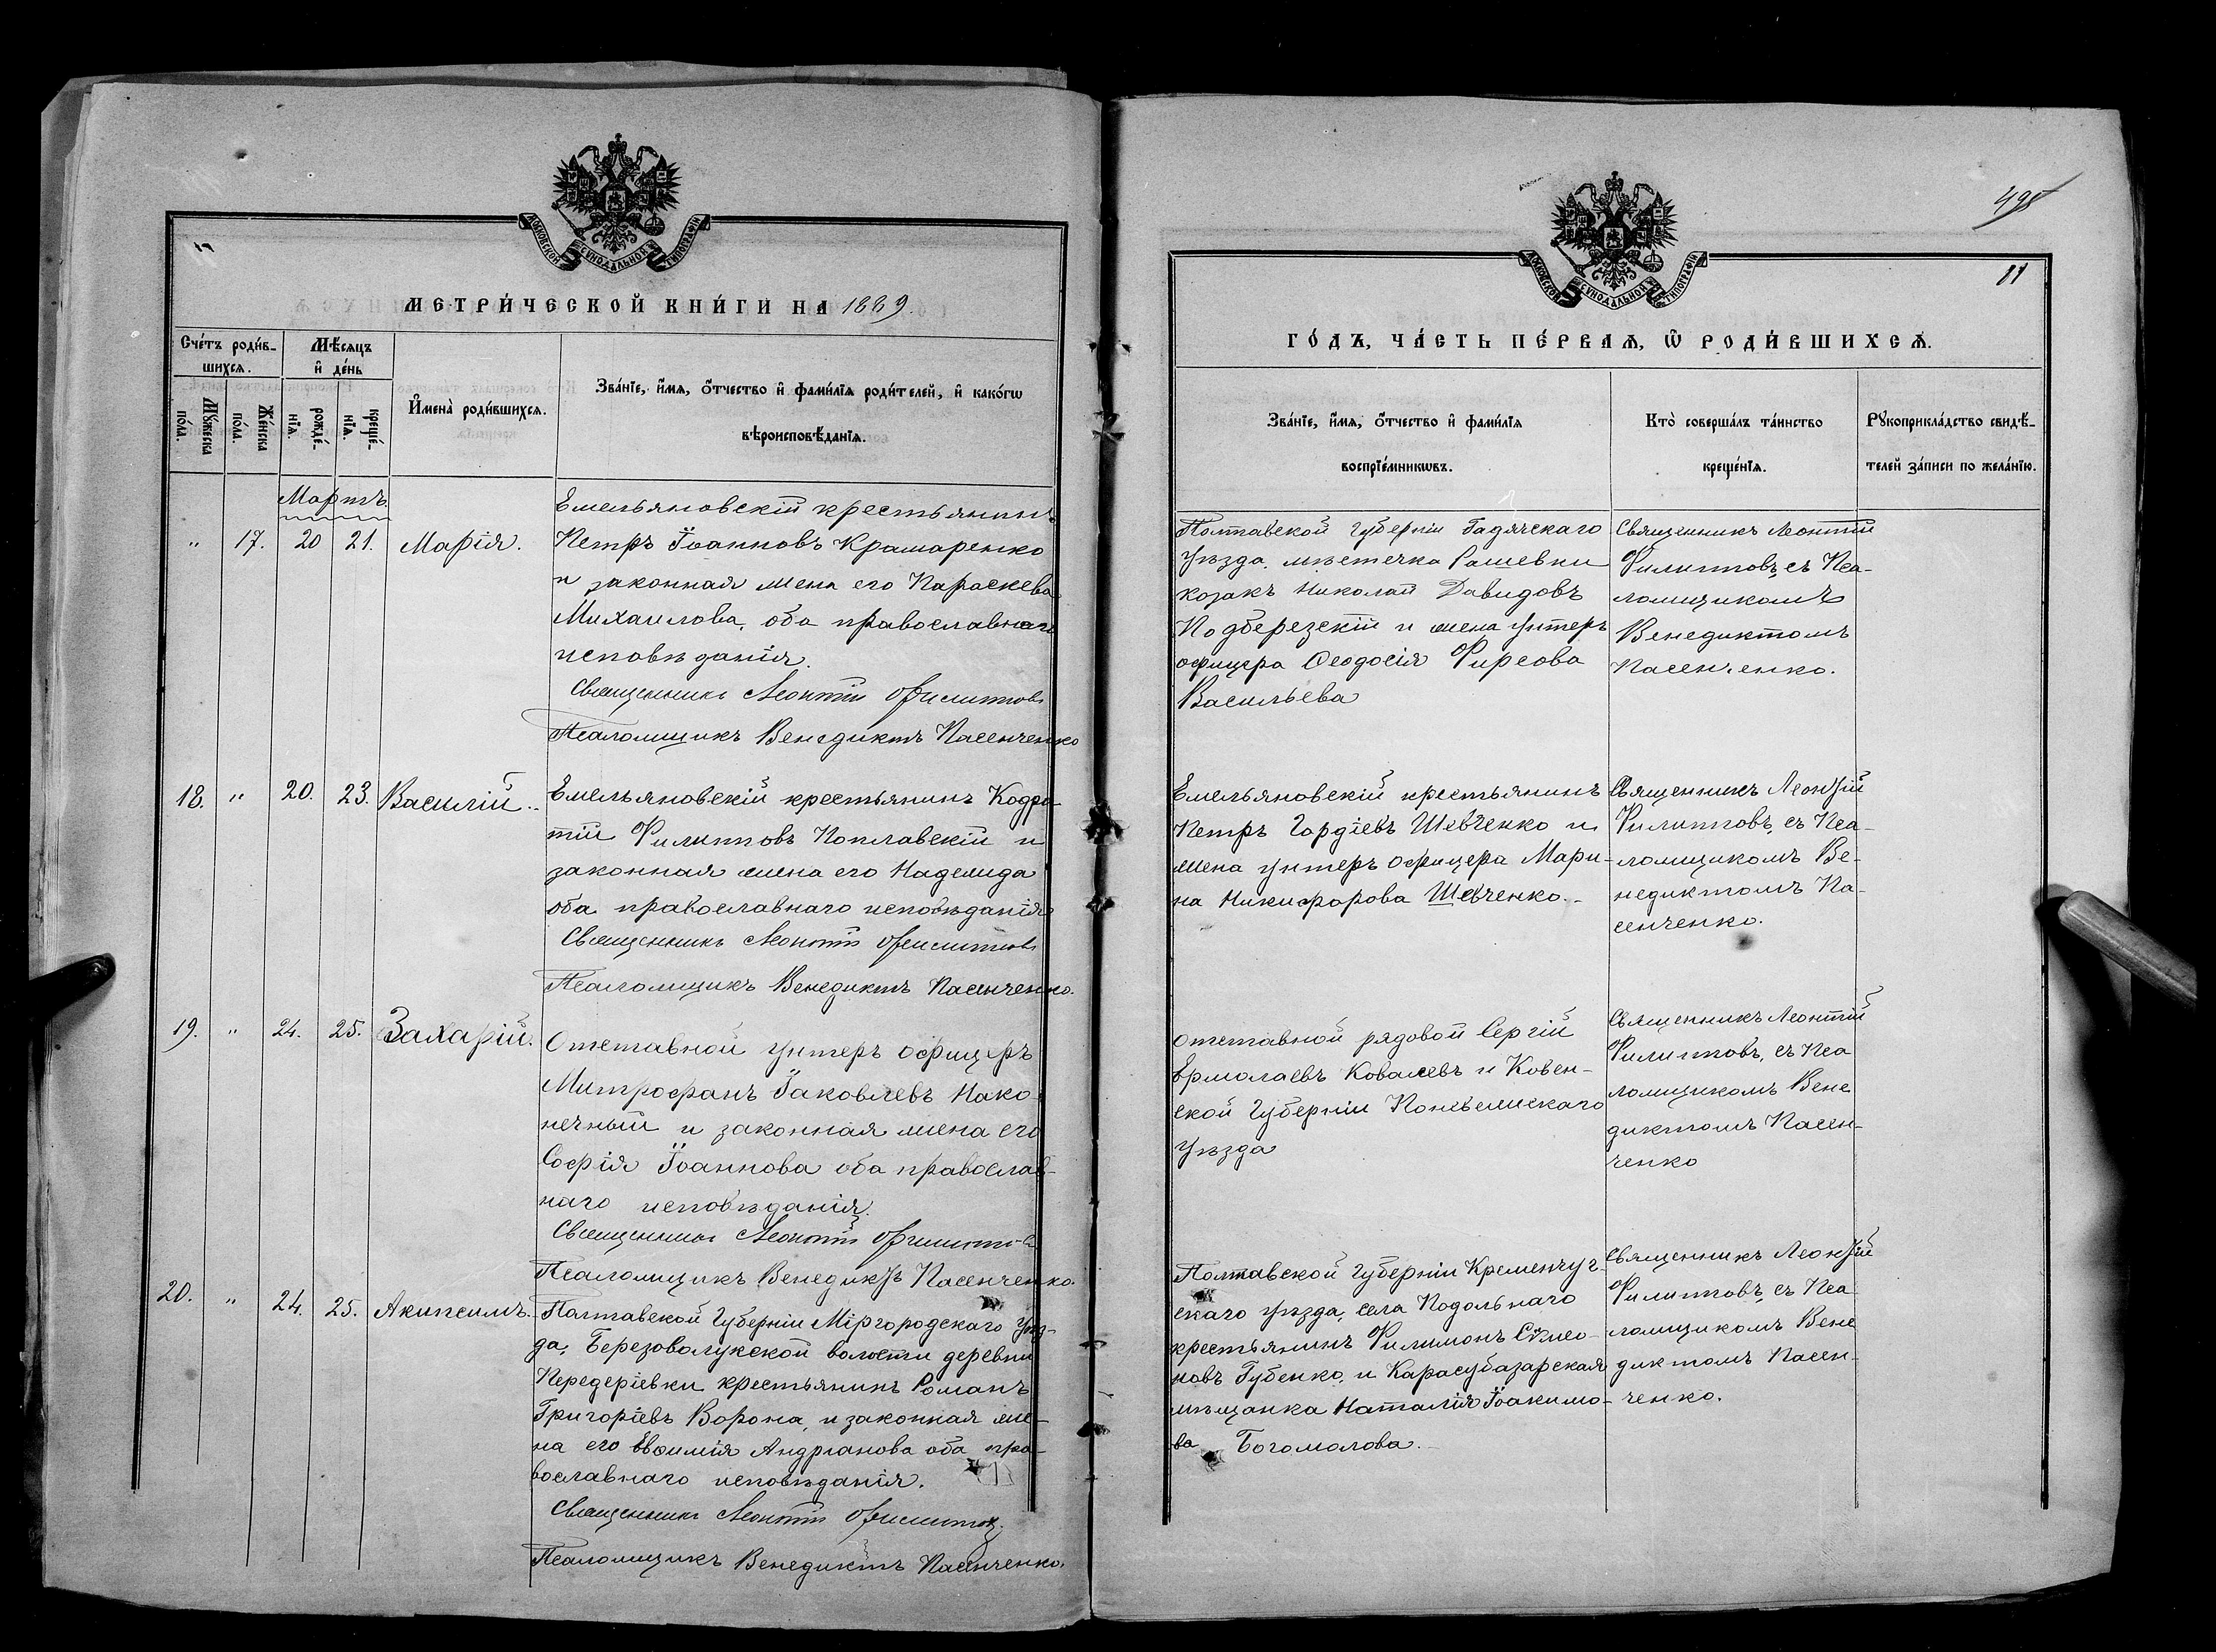 МОСКОВСКОЙ СѴНОДАЛЬНОЙ ТИПОГРАФІИ
МЕТРИ́ЧЕСКОЙ КНИ́ГИ НА 1889.
Сче́тъ роди́в-
шихсѧ.
Мѣ́сѧцъ
и҆ де́нь
Мꙋ́жеска
по́ла.
Же́нска
по́ла.
рожде́-
нїѧ.
креще́-
нїѧ.
И҆мена̀ роди́вшихсѧ.
Зва́нїе, и҆́мѧ, ѻ҆́тчество и҆ фами́лїѧ роди́телей, и҆ како́гѡ
вѣроисповѣ́данїѧ.
Мартъ.
" 17. 20 21. Марія.
Емельяновскій крестьянинъ
Петръ Іоанновъ Крамаренко
и законная жена его Параскева
Михаилова, оба православнаго
исповѣданія.
Священникъ Леонтій Филиповъ
Псаломщикъ Венедиктъ Пасенченко
18. " 20. 23. Василій.
Емельяновскій крестьянинъ Кодра-
тій Филипповъ Поплавскій и
законная жена его Надежда
оба православнаго исповѣданія
Священникъ Леонтій Филиповъ
Псаломщикъ Венедиктъ Пасенченко.
19. " 24. 25. Захарій.
Отставной унтеръ офицеръ
Митрофанъ Іаковлевъ Нако-
нечный и законная жена его
Софія Іоаннова оба православ-
наго исповѣданія.
Священникъ Леонтій Филиповъ
Псаломщикъ Венедиктъ Пасенченко.
20. " 24. 25. Акипсимъ.
Полтавской Губерніи Міргородскаго Уѣз-
да, Березоволукской волости деревни
Передеріевки крестьянинъ Романъ
Григоріевъ Ворона, и законная же-
на его Евѳимія Андріанова оба пра-
вославнаго исповѣданія.
Священникъ Леонтій Филиповъ
Псаломщикъ Венедиктъ Пасенченко.
495
11
МОСКОВСКОЙ СѴНОДАЛЬНОЙ ТИПОГРАФІИ
ГО́ДЪ, ЧА́СТЬ ПЕ́РВАѦ, Ѽ РОДИ́ВШИХСѦ.
Зва́нїе, и҆́мѧ, ѻ҆́тчество и҆ фами́лїѧ
воспрїе́мникѡвъ.
Кто̀ соверша́лъ та́инство
креще́нїѧ.
Рꙋкоприкла́дство свидѣ́-
телей за́писи по жела́нїю.
Полтавской Губерніи Гадячскаго
Уѣзда, мѣстечка Рашевки
козакъ Николай Давидовъ
Подберезскій и жена унтеръ
офицера Ѳеодосія Фирсова
Васильева
Священникъ Леонтій
Филипповъ, съ Пса-
ломщикомъ
Венедиктомъ
Пасенченко.
Емельяновскій крестьянинъ
Петръ Гордіевъ Шевченко и
жена унтеръ офицера Мари-
на Никифорова Шевченко.
Священникъ Леонтій
Филипповъ, съ Пса-
ломщикомъ Ве-
недиктомъ Па-
сенченко.
отставной рядовой Сергій
Ермолаевъ Ковалевъ и Ковен-
ской Губерніи
Уѣзда
Священникъ Леонтій
Филипповъ, съ Пса
ломщикомъ Вене
диктомъ Пасен-
ченко
Полтавской Губерніи Кременчуг-
скаго уѣзда, села Подольнаго
крестьянинъ Филимонъ Сѵмео-
новъ Губенко, и Карасубазарская
мѣщанка Наталія Іоакимо-
ва Богомолова.
Священникъ Леонтій
Филипповъ, съ Пса
ломщикомъ Вене
диктомъ Пасен-
ченко.